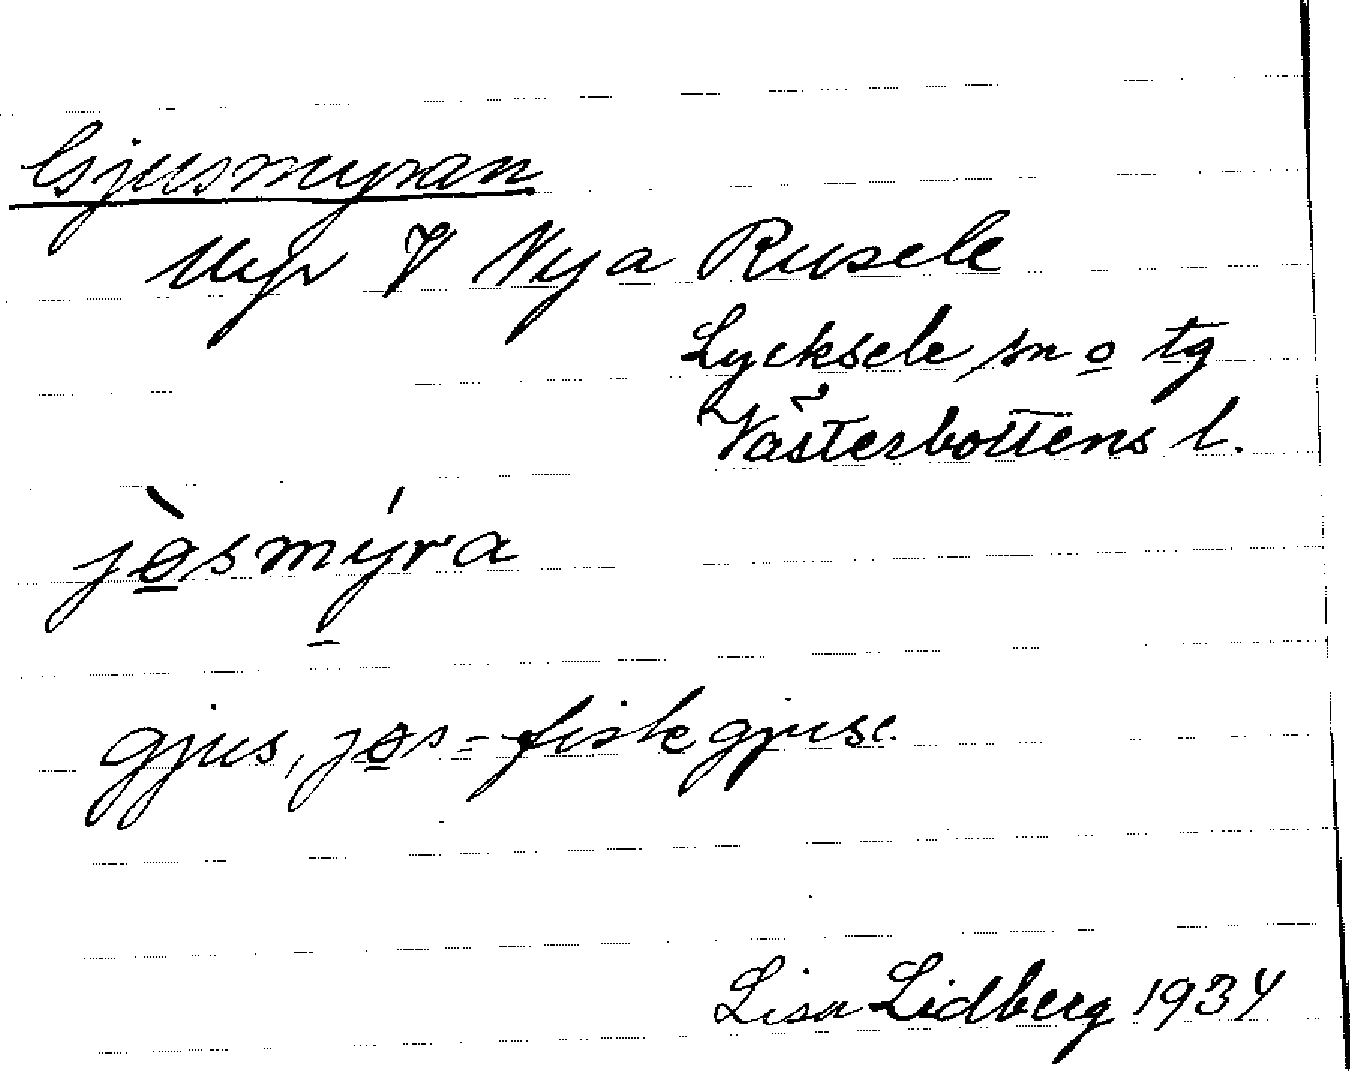 Gjusmyran
Myr V Nya Rusele
Lycksele sn o tg
Västerbottens l.
jø̀smýra
gjus, jøs = fiskgjuse.
Lisa Lidberg 1934